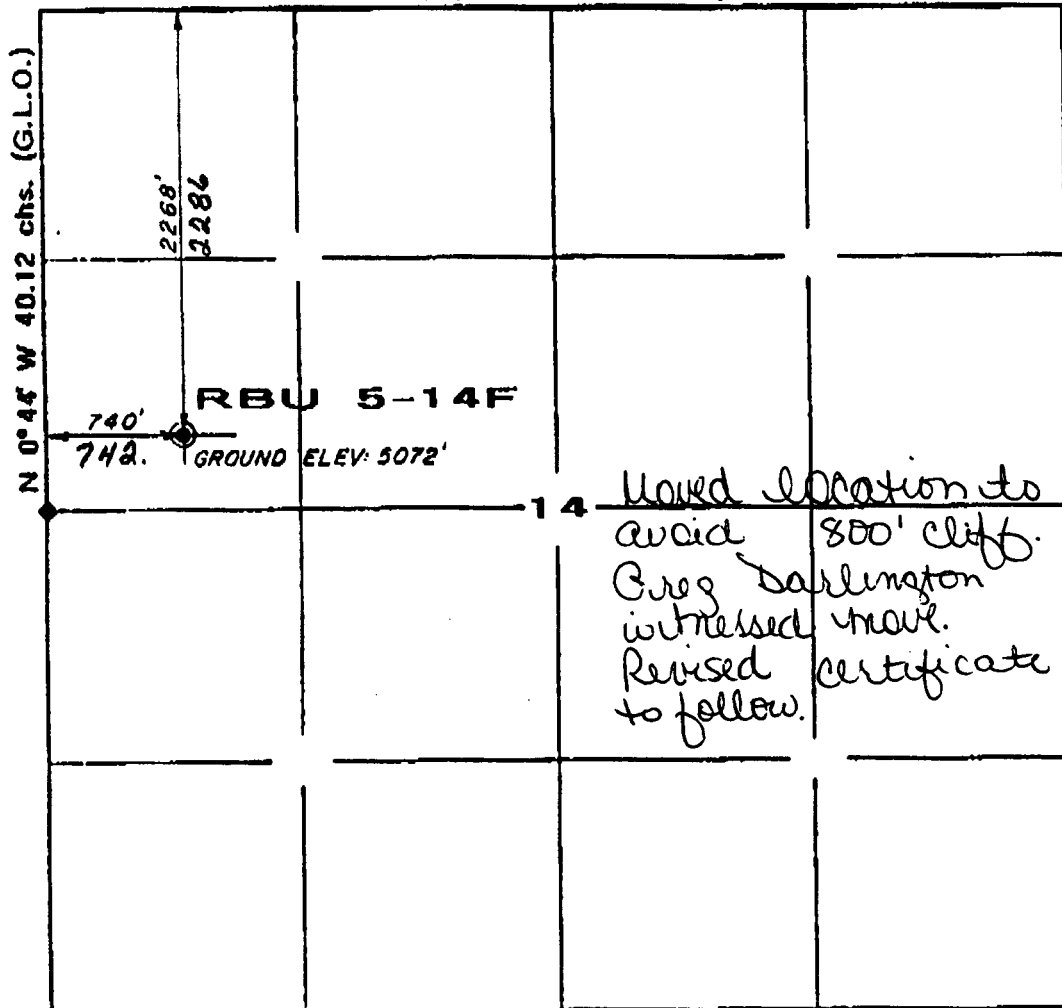 N 0°44' W 40.12 chs. (G.L.O.)
2268'
2286
RBU 5-14F
740'
742.
GROUND ELEV: 5072'
14
Moved location to
avoid 800' cliff.
Greg Darlington
witnessed move.
Revised certificate
to follow.